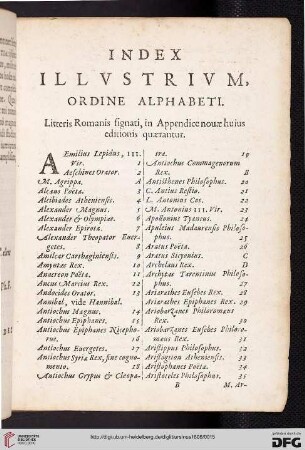 INDEX
ILLVSTRIVM,
ORDINE ALPHABETI.
Litteris Romanis signati, in Appendice nouæ huius
editionis quærantur.
AEmilius Lepidus, III.
Vir. 1
Aeschines Orator. 2
M. Agrippa. A
Alcæus Poëta. 3
Alcibiades Atheniensis. 4
Alexander Magnus. 5
Alexander & Olympias. 6
Alexander Epirota. 7
Alexander Theopator Euer-
getes. 8
Amilcar Carthaginiensis. 9
Amyntæ Rex. 10
Anacreon Poëta. 11
Ancus Marius Rex. 12
Andocides Orator. 13
Annibal, vide Hannibal.
Antiochus Magnus. 14
Antiochus Epiphanes. 15
Antiochus Epiphanes Nicepho-
rus. 16
Antiochus Euergetes. 17
Antiochus Syriæ Rex, sine cogno-
mento. 18
Antiochus Grypus & Cleopa-
tra. 19
Antiochus Commagenorum
Rex. B
Antisthenes Philosophus. 20
C. Antius Restio. 21
L. Antonius Cos. 22
M. Antonius III. Vir. 23
Apollonius Tyaneus. 24
Apuleius Madaurensis Philoso-
phus. 25
Aratus Poëta. 26
Aratus Sicyonius. C
Archelaus Rex. D
Archytas Tarentinus Philoso-
phus. 27
Ariarathes Eusebes Rex. 28
Ariarathes Epiphanes Rex. 29
Ariobarzanes Philoromæus
Rex. 30
Ariobarzanes Eusebes Philoro-
mæus Rex. 31
Aristippus Philosophus. 32
Aristogiton Atheniensis. 33
Aristophanes Poëta. 34
Aristoteles Philosophus. 35
B M. Ar-
UNIVERSITÄTS-
BIBLIOTHEK
HEIDELBERG
http://digi.ub.uni-heidelberg.de/diglit/ursinus1606/0015
gefördert durch die
DFG